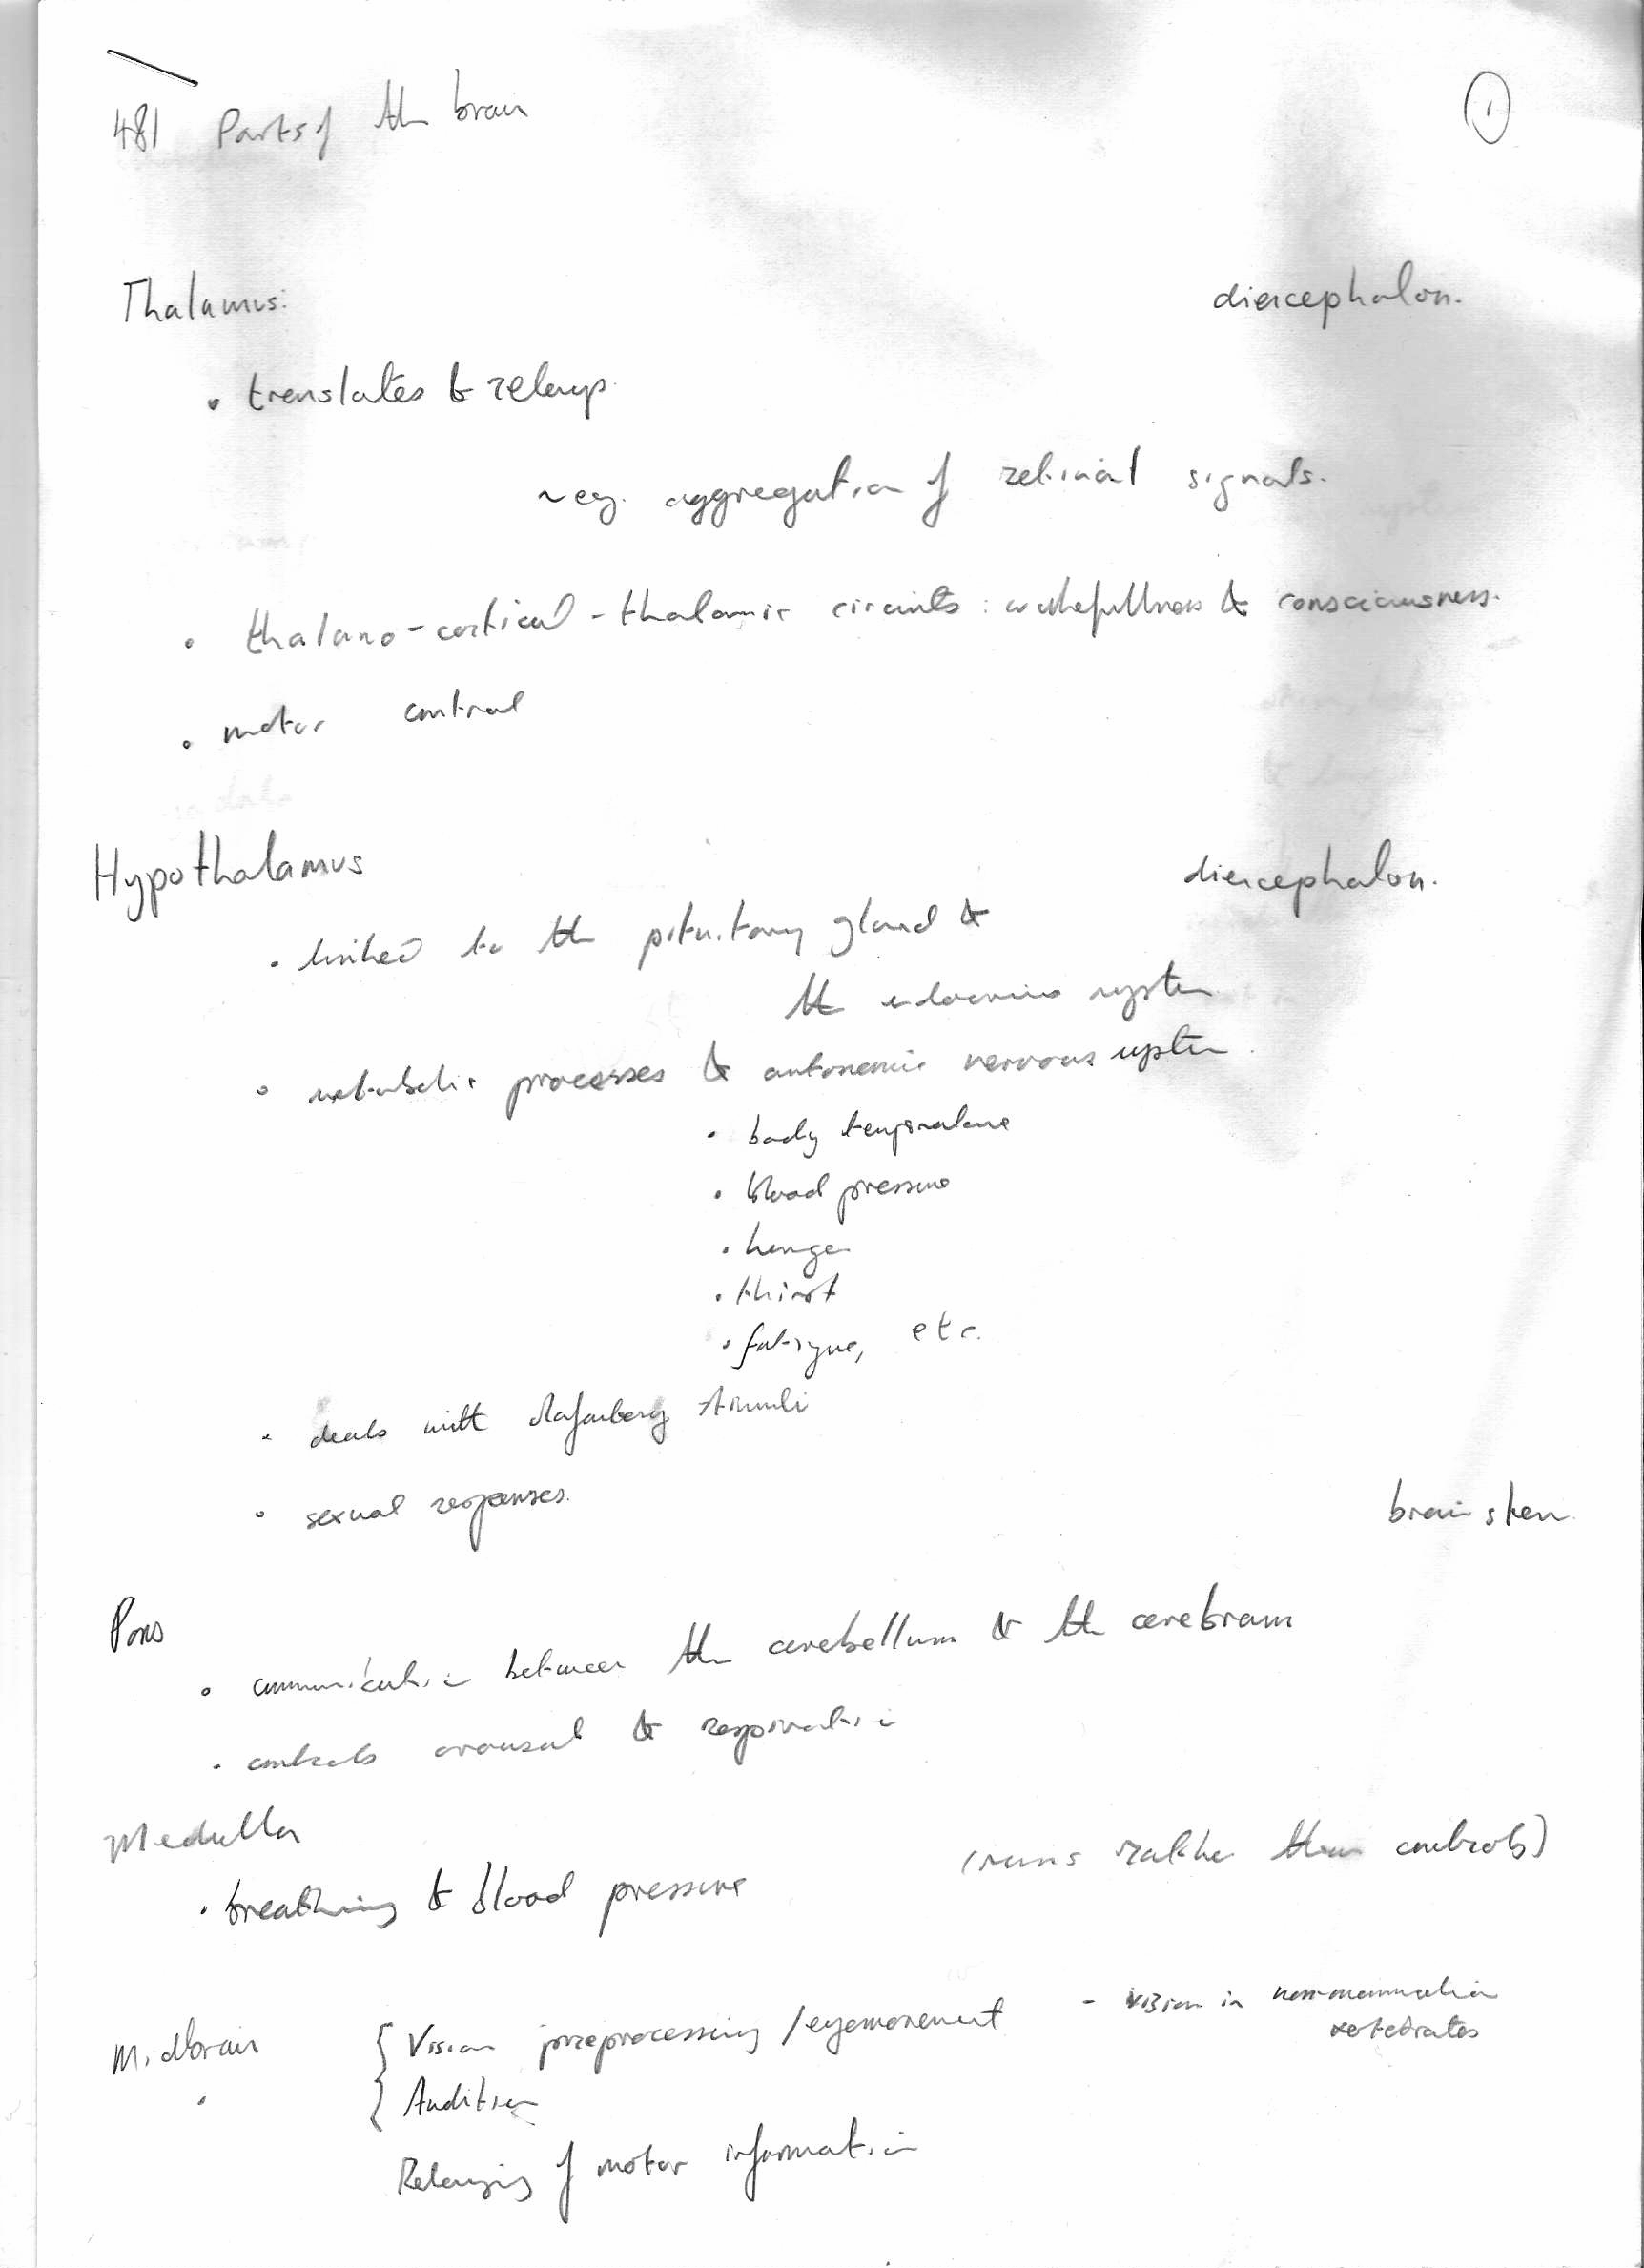 481 Parts of the brain
1
Thalamus: diencephalon.
• translates & relays.
~ eg. aggregation of retinal signals.
• thalamo-cortical-thalamic circuits: wakefullness & consciousness.
• motor control
Hypothalamus diencephalon.
• linked to the pituitary gland &
the endocrine system
• metabolic processes & autonomic nervous system.
• body temperature
• blood pressure
• hunger
• thirst
• fatigue, etc.
• deals with olfactory stimuli
• sexual responses.
brain stem.
Pons
• communication between the cerebellum & the cerebrum
• controls arousal & respiration
Medulla
(runs rather than controls)
• breathing & blood pressure
Midbrain { Vision preprocessing / eyemovement - vision in non-mammalian
vertebrates
• { Audition
Relaying of motor information